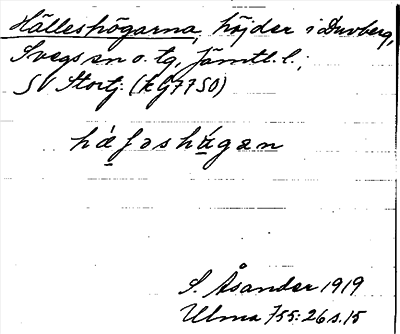 Hälleshögarna, höjder i Duvberg,
Svegs sn o. tg, Jämtl. l.;
SV Stortj. (kg 7750)
háfəshǻgan
S. Åsander 1919
Ulma 755:26 s. 15